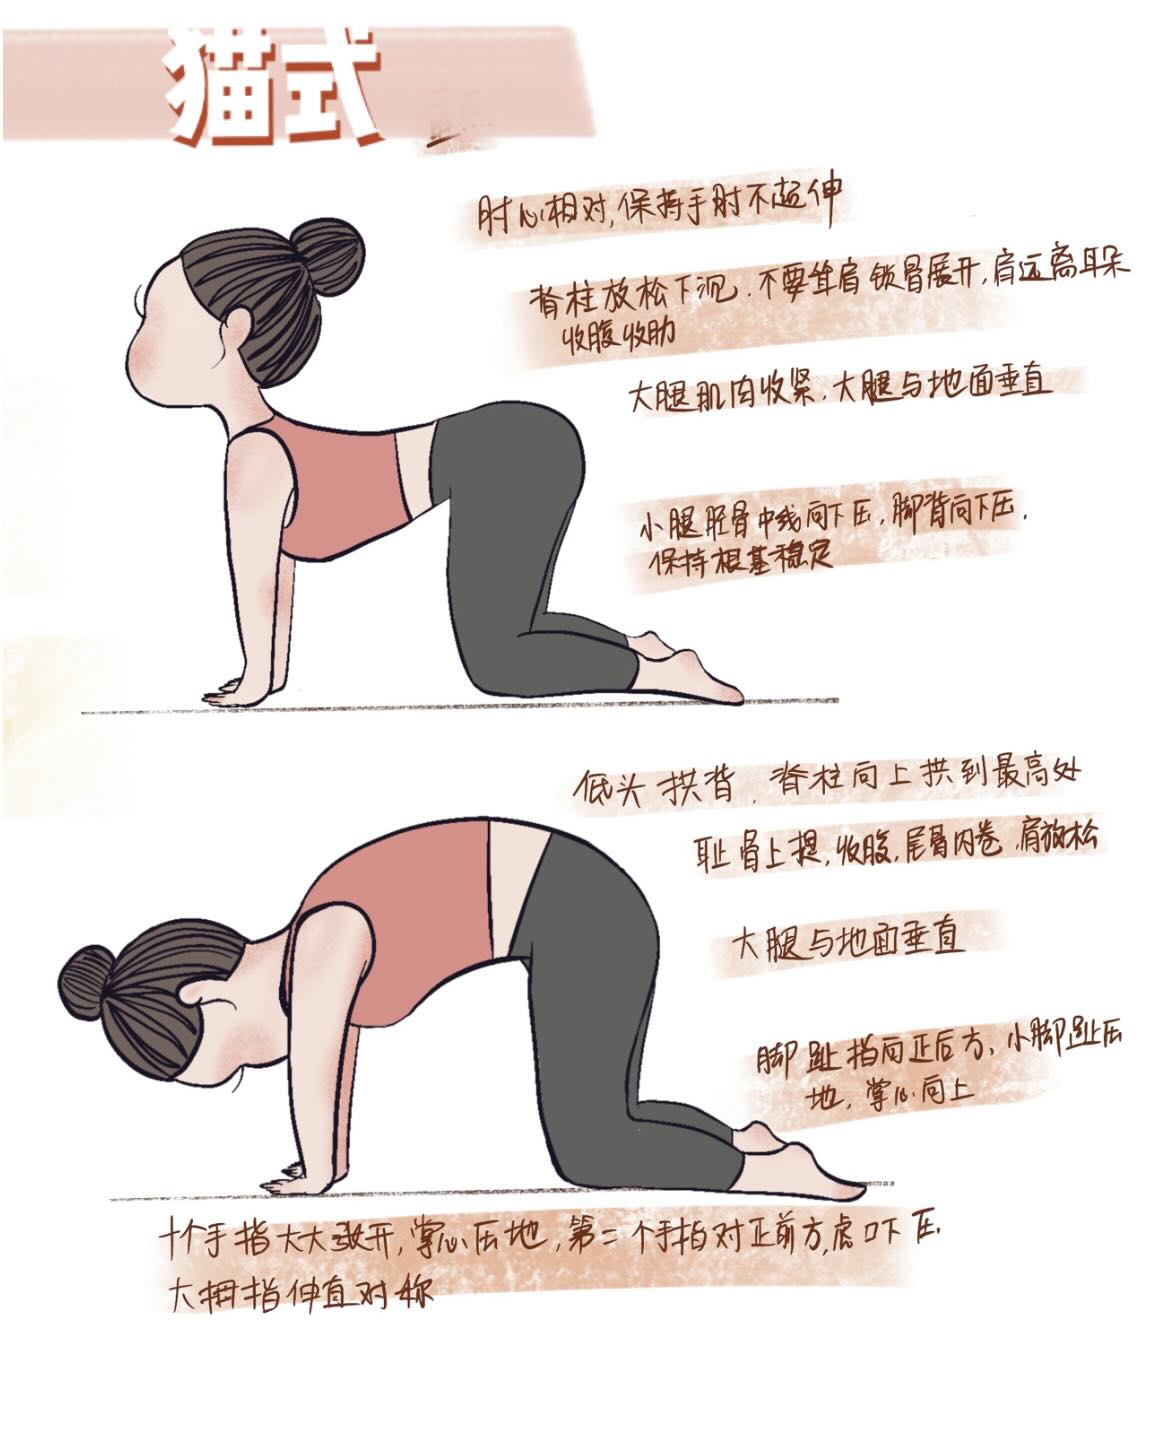 猫式
重点
肘心相对,保持手肘不超伸
脊柱放松下沉.不要耸肩 锁骨展开,肩远离耳朵
收腹收肋
大腿肌肉收紧.大腿与地面垂直
小腿胫骨中线向下压,脚背向下压,
保持根基稳定
低头 拱背.脊柱向上拱到最高处
耻骨上提,收腹,尾骨内卷,肩放松
大腿与地面垂直
脚趾指向正后方,小脚趾压
地,掌心向上
十个手指大大张开,掌心压地,第二个手指对正前方,虎口下压.
大拇指伸直对称